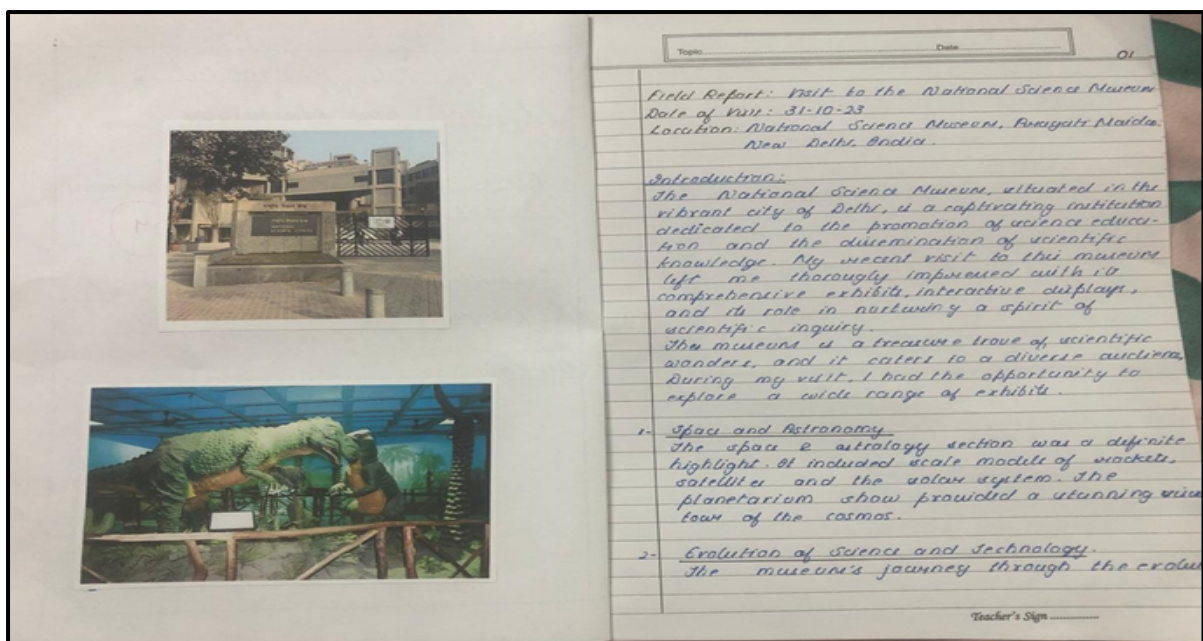 Topic
Date
01
Field Report: Visit to the National Science Museum
Date of Visit: 31-10-23
Location: National Science Museum, Pragati Maidan
New Delhi, India.
Introduction:
The National Science Museum, situated in the
vibrant city of Delhi, is a captivating institution
dedicated to the promotion of science educa-
tion and the dissemination of scientific
knowledge. My recent visit to this museum
left me thoroughly impressed with its
comprehensive exhibits, interactive displays,
and its role in nurturing a spirit of
scientific inquiry.
This museum is a treasure trove of scientific
wonders, and it caters to a diverse audience,
During my visit, I had the opportunity to
explore a wide range of exhibits.
1- Space and Astronomy
The space & astrology section was a definite
highlight. It included scale models of rockets,
satellites and the solar system. The
planetarium show provided a stunning
tour of the cosmos.
2- Evolution of Science and Technology.
The museum's journey through the evolu
Teacher's Sign